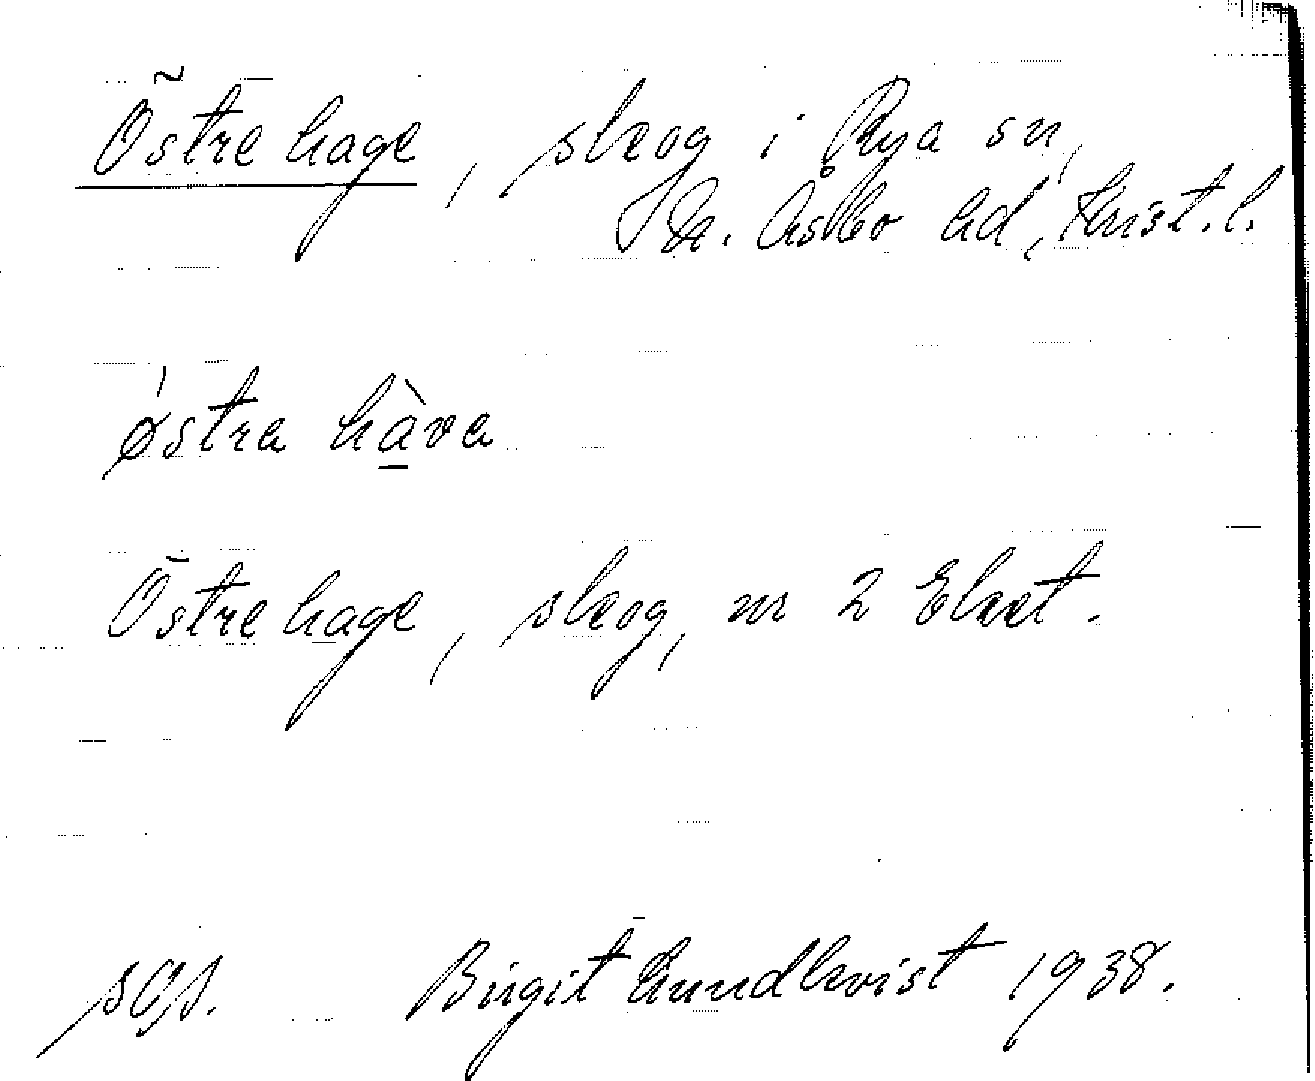 Östre hage, skog i Rya sn,
N. Åsbo hd, Krist. l.
østra hàva
Östre hage, skog, nr 2 Eket.
sgs. Birgit Lundkvist 1938.